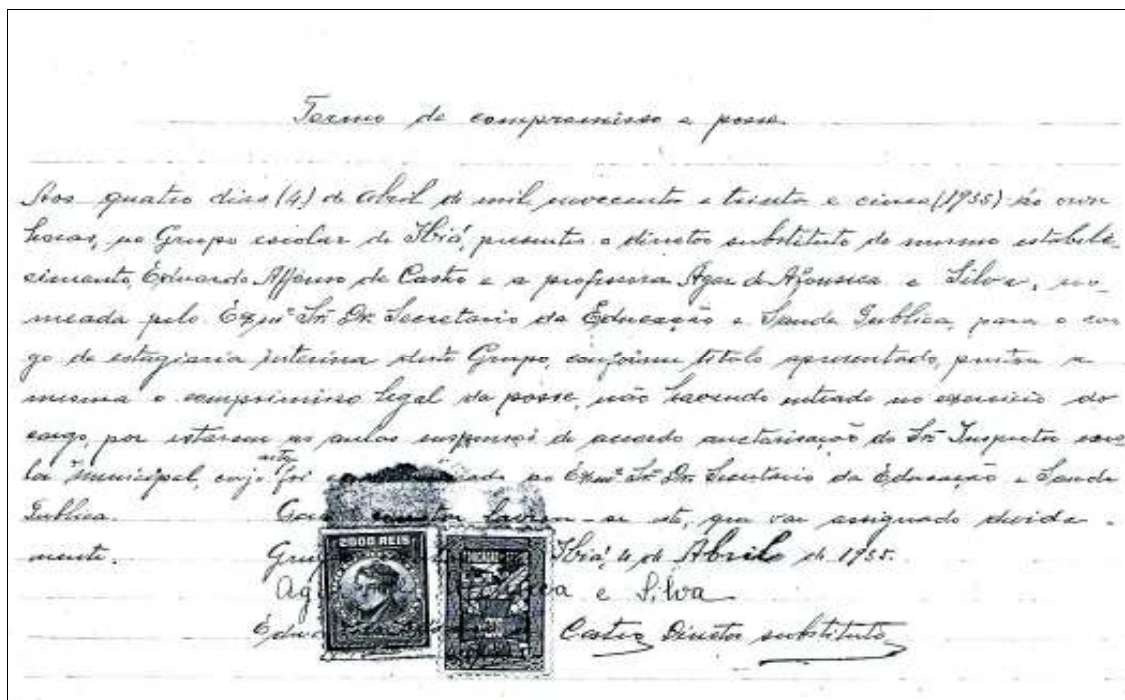 Termo de compromisso e posse.
Aos quatro dias (4) de Abril de mil novecentos e trinta e cinco (1935) ás onze
horas, no Grupo escolar de Ibiá, presentes o director substituto do mesmo estabele-
cimento, Eduardo Affonso de Castro e a professora Agar de Afonseca e Silva, no-
meada pelo Exmº Snr. Dr. Secretario da Educação e Saude Publica, para o car-
go de estagiaria interina deste Grupo, conforme titulo apresentado, prestou a
mesma o compromisso legal da posse, não havendo entrado no exercicio do
cargo, por estarem as aulas suspensas de accordo auctorisação do Snr. Inspector esco-
lar municipal, cujo acto foi ao Exmº Sr. Dr. Secretario da Educação e Saude
Publica. constar lavrou-se este, que vae assignado devida-
mente. Ibiá, 4 de Abril de 1935.
e Silva
Castro Director substituto
2000 REIS